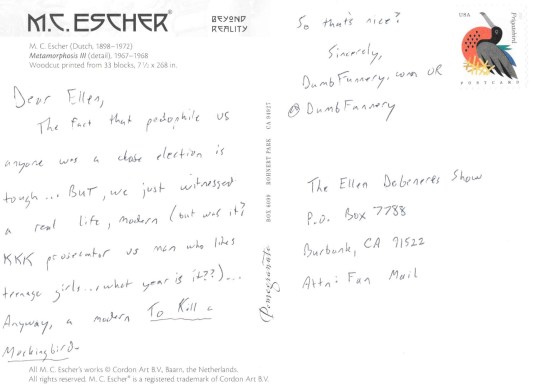 M.C. ESCHER®
BEYOND
REALITY
M. C. Escher (Dutch, 1898–1972)
Metamorphosis III (detail), 1967–1968
Woodcut printed from 33 blocks, 7 1/2 x 268 in.
Dear Ellen,
The fact that pedophile vs
anyone was a close election is
tough... BUT, we just witnessed
a real life, modern (but was it?
KKK prosecutor vs man who likes
teenage girls...what year is it??)...
Anyway, a modern To Kill a
Mockingbird.
All M.C. Escher's works © Cordon Art B.V., Baarn, the Netherlands.
All rights reserved. M. C. Escher® is a registered trademark of Cordon Art B.V.
Pomegranate
BOX 6099 ROHNERT PARK CA 94927
So that's nice?
Sincerely,
DumbFunnery.com OR
@DumbFunnery
USA
POSTCARD
The Ellen Degeneres Show
P.O. Box 7788
Burbank, CA 91522
Attn: Fan Mail